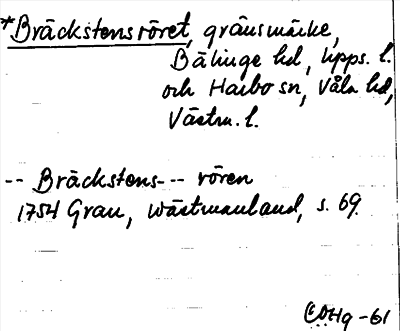 *Bräckstensröret, gränsmärke,
Bälinge hd, Upps. l.
och Harbo sn, Våla hd,
Västm. l.
-- Bräckstens--- rören
1754 Grau, Wästmanland, s. 69.
EOHg -61